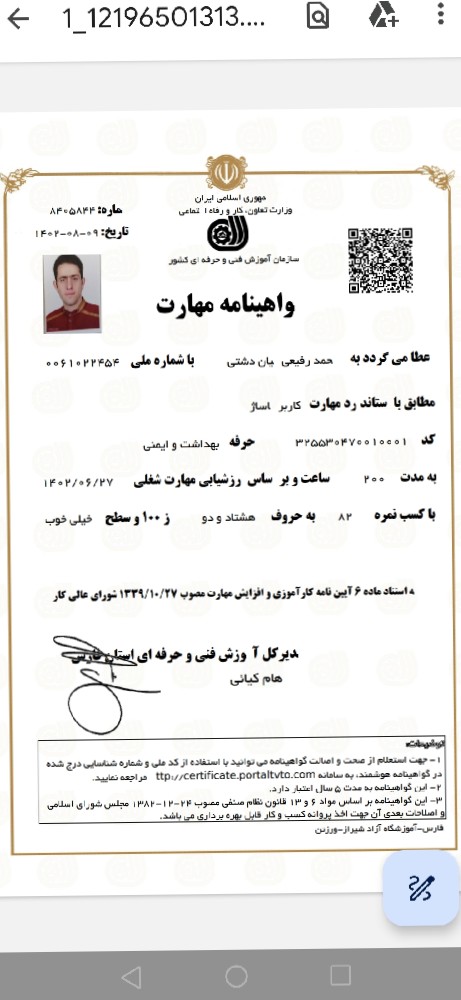 1_12196501313....
جمهوری اسلامی ایران
وزارت تعاون، کار و رفاه ا تماعی
ماره: ۸۴۰۵۸۴۴
تاریخ: ۱۴۰۲-۰۸-۰۹
سازمان آموزش فنی و حرفه ای کشور
واهینامه مهارت
عطا می گردد به حمد رفیعی یان دشتی با شماره ملی ۰۰۶۱۰۲۲۴۵۴
مطابق با ستاند رد مهارت کاربر اساژ
کد ۳۲۵۵۳۰۴۷۰۰۱۰۰۰۱ حرفه بهداشت و ایمنی
به مدت ۲۰۰ ساعت و بر ساس رزشیابی مهارت شغلی ۱۴۰۲/۰۶/۲۷
با کسب نمره ۸۲ به حروف هشتاد و دو ز ۱۰۰ و سطح خیلی خوب
ه استناد ماده ۶ آیین نامه کارآموزی و افزایش مهارت مصوب ۱۳۳۹/۱۰/۲۷ شورای عالی کار
دیرکل آ وزش فنی و حرفه ای استان فارس
هام کیانی
توضیحات:
۱- جهت استعلام از صحت و اصالت گواهینامه می توانید با استفاده از کد ملی و شماره شناسایی درج شده
در گواهینامه هوشمند، به سامانه ttp://certificate.portaltvto.com مراجعه نمایید.
۲- این گواهینامه به مدت ۵ سال اعتبار دارد.
۳- این گواهینامه بر اساس مواد ۶ و ۱۳ قانون نظام صنفی مصوب ۲۴-۱۲-۱۳۸۲ مجلس شورای اسلامی
و اصلاحات بعدی آن جهت اخذ پروانه کسب و کار قابل بهره برداری می باشد.
فارس-آموزشگاه آزاد شیراز-ورزین